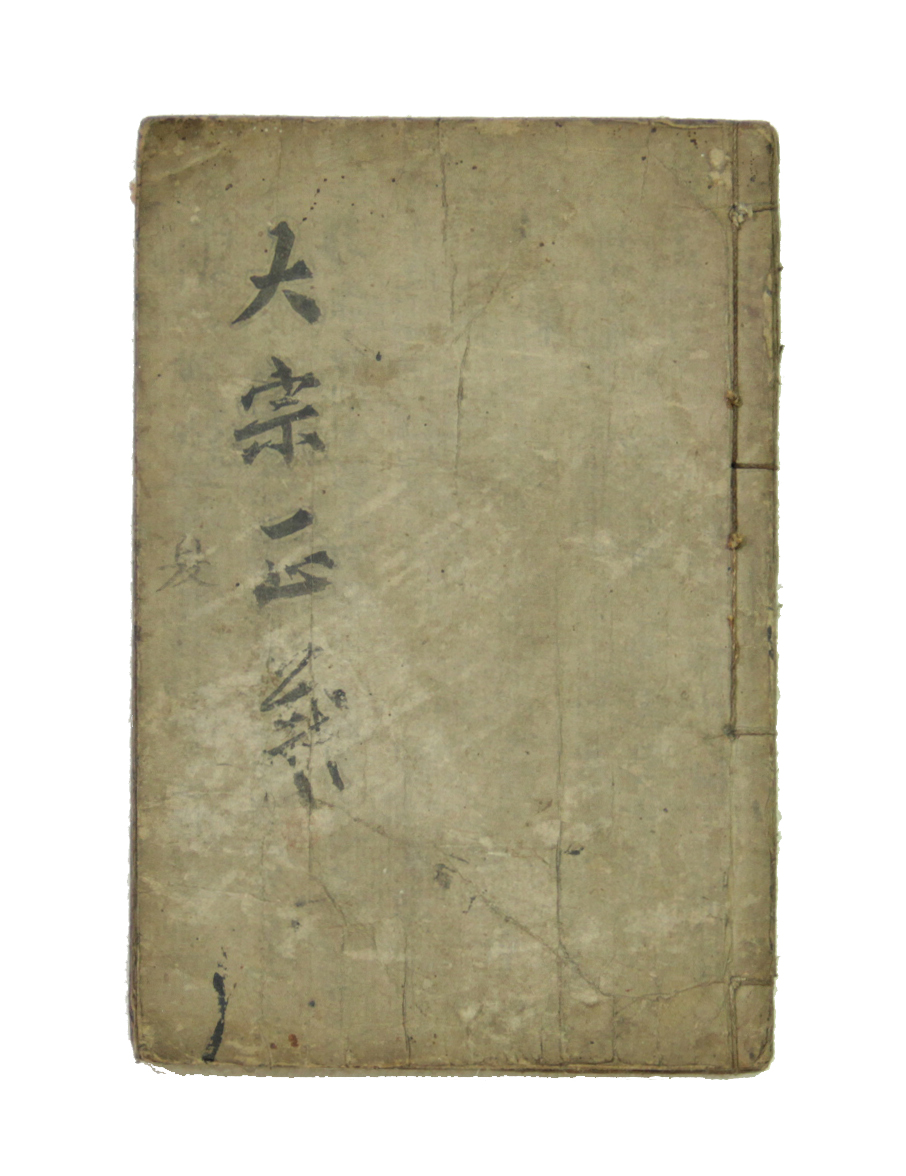 大宗正義